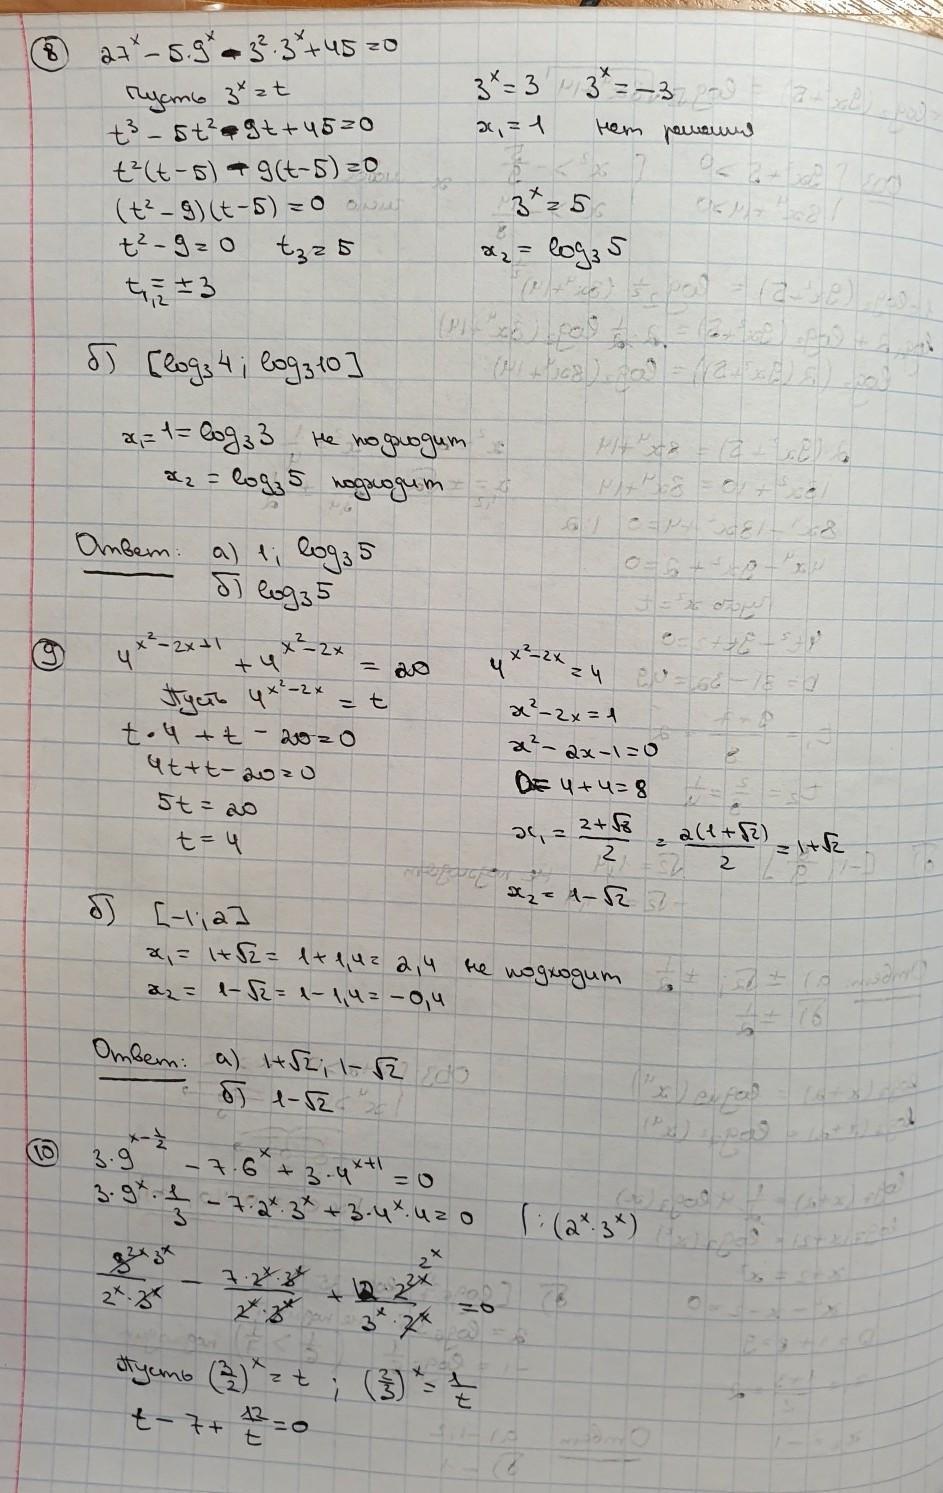 8 27^x - 5·9^x - 3^2·3^x + 45 = 0
Пусть 3^x = t
t^3 - 5t^2 - 9t + 45 = 0
t^2(t-5) - 9(t-5) = 0
(t^2 - 9)(t-5) = 0
t^2 - 9 = 0 t_3 = 5
t_1,2 = ± 3
3^x = 3 3^x = -3
x_1 = 1 нет решения
3^x = 5
x_2 = log_3 5
б) [log_3 4; log_3 10]
x_1 = 1 = log_3 3 не подходит
x_2 = log_3 5 подходит
Ответ: а) 1; log_3 5
б) log_3 5
9 4^(x^2-2x+1) + 4^(x^2-2x) = 20
Пусть 4^(x^2-2x) = t
t·4 + t - 20 = 0
4t + t - 20 = 0
5t = 20
t = 4
4^(x^2-2x) = 4
x^2 - 2x = 1
x^2 - 2x - 1 = 0
D = 4 + 4 = 8
x_1 = (2+√8)/2 = 2(1+√2)/2 = 1+√2
x_2 = 1-√2
б) [-1; 2]
x_1 = 1+√2 = 1+1,4 = 2,4 не подходит
x_2 = 1-√2 = 1-1,4 = -0,4
Ответ: а) 1+√2; 1-√2
б) 1-√2
10 3·9^(x-1/2) - 7·6^x + 3·4^(x+1) = 0
3·9^x·1/3 - 7·2^x·3^x + 3·4^x·4 = 0 |:(2^x·3^x)
3^(2x) 3^x/(2^x·3^x) - 7·2^x·3^x/(2^x·3^x) + 12·2^(2x) 2^x/(3^x·2^x) = 0
Пусть (3/2)^x = t ; (2/3)^x = 1/t
t - 7 + 12/t = 0